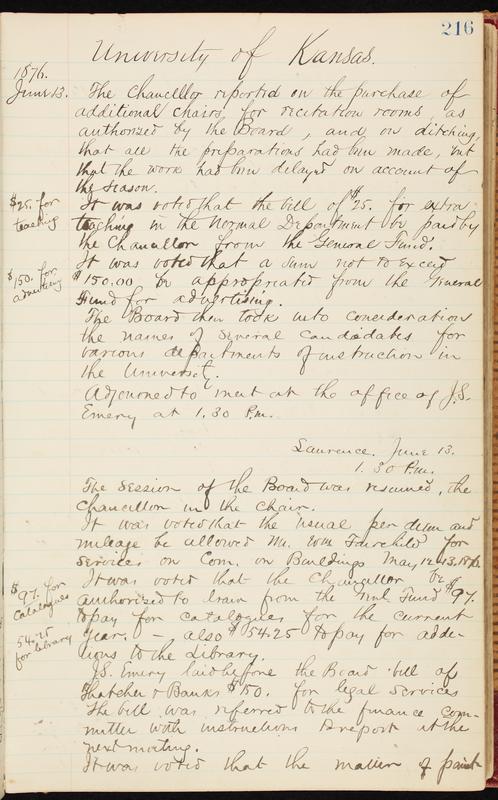 216
University of Kansas.
1876.
June 13. The Chancellor reported on the purchase of
additional chairs, for recitation rooms, as
authorized by the Board, and on ditching,
that all the preparations had been made, but
that the work had been delayed on account of
the season.
$25. for
teaching
It was voted that the bill of $25. for extra
teaching in the Normal Department be paid by
the Chancellor from the General Fund.
$150. for
advertising
It was voted that a sum not to exceed
$150.00 be appropriated from the General
Fund for advertising.
The Board then took into consideration
the names of several candidates for
various departments of instruction in
the University.
Adjourned to meet at the office of J.S.
Emery at 1.30 P.m.
Lawrence. June 13.
1.30 P.m.
The Session of the Board was resumed, the
Chancellor in the chair.
It was voted that the usual per diem and
mileage be allowed Mr. Wm Fairchild for
services on Com. on Buildings May 12 & 13. 1876.
$97. for
Catalogues
It was voted that the Chancellor be
authorized to loan from the Fund $97.
to pay for catalogues for the current
54.25
for library
year. - also $54.25 to pay for addi-
tions to the Library.
J.S. Emery laid before the Board bill of
Thatcher & Banks $150. for legal services
The bill was referred to the finance com-
mittee with instructions to report at the
next meeting.
It was voted that the matter of paint